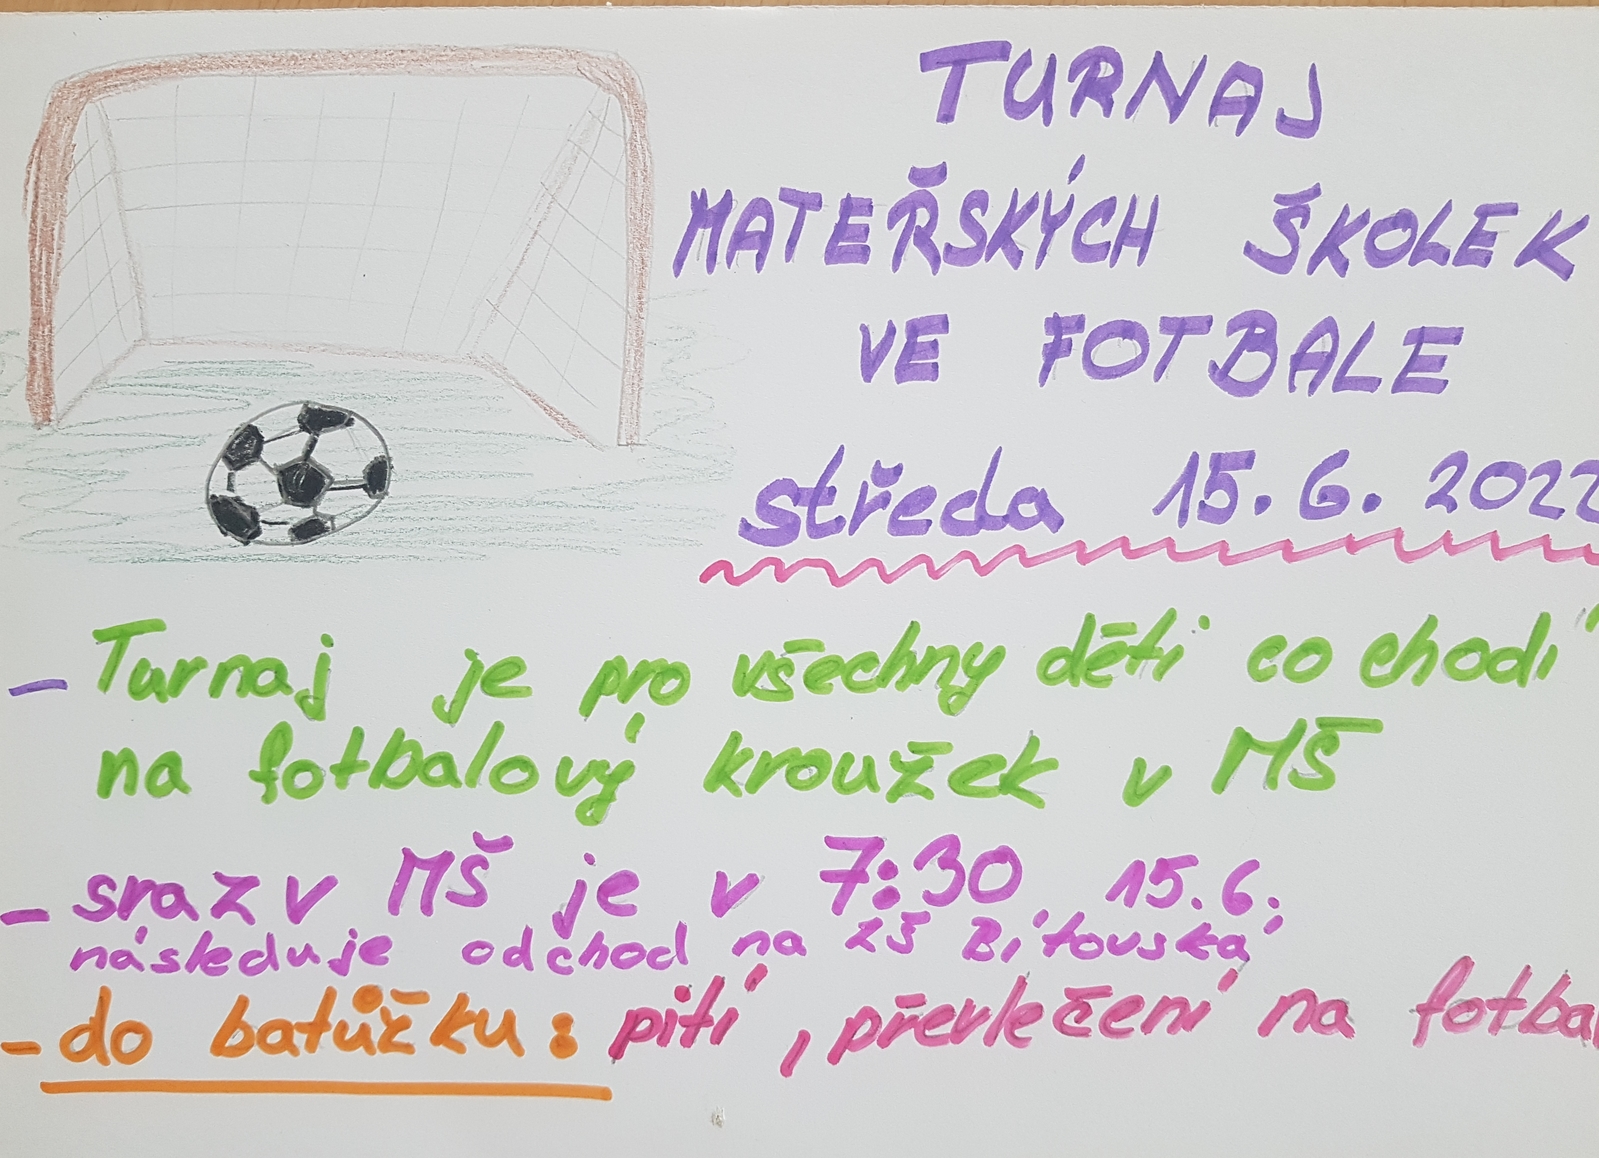 TURNAJ
MATEŘSKÝCH ŠKOLEK
VE FOTBALE
středa 15.6.2022
- Turnaj je pro všechny děti co chodí
na fotbalový kroužek v MŠ
- sraz v MŠ je v 7:30 15.6.
následuje odchod na ZŠ Bítouská
- do batůžku: pití, převlečení na fotbal